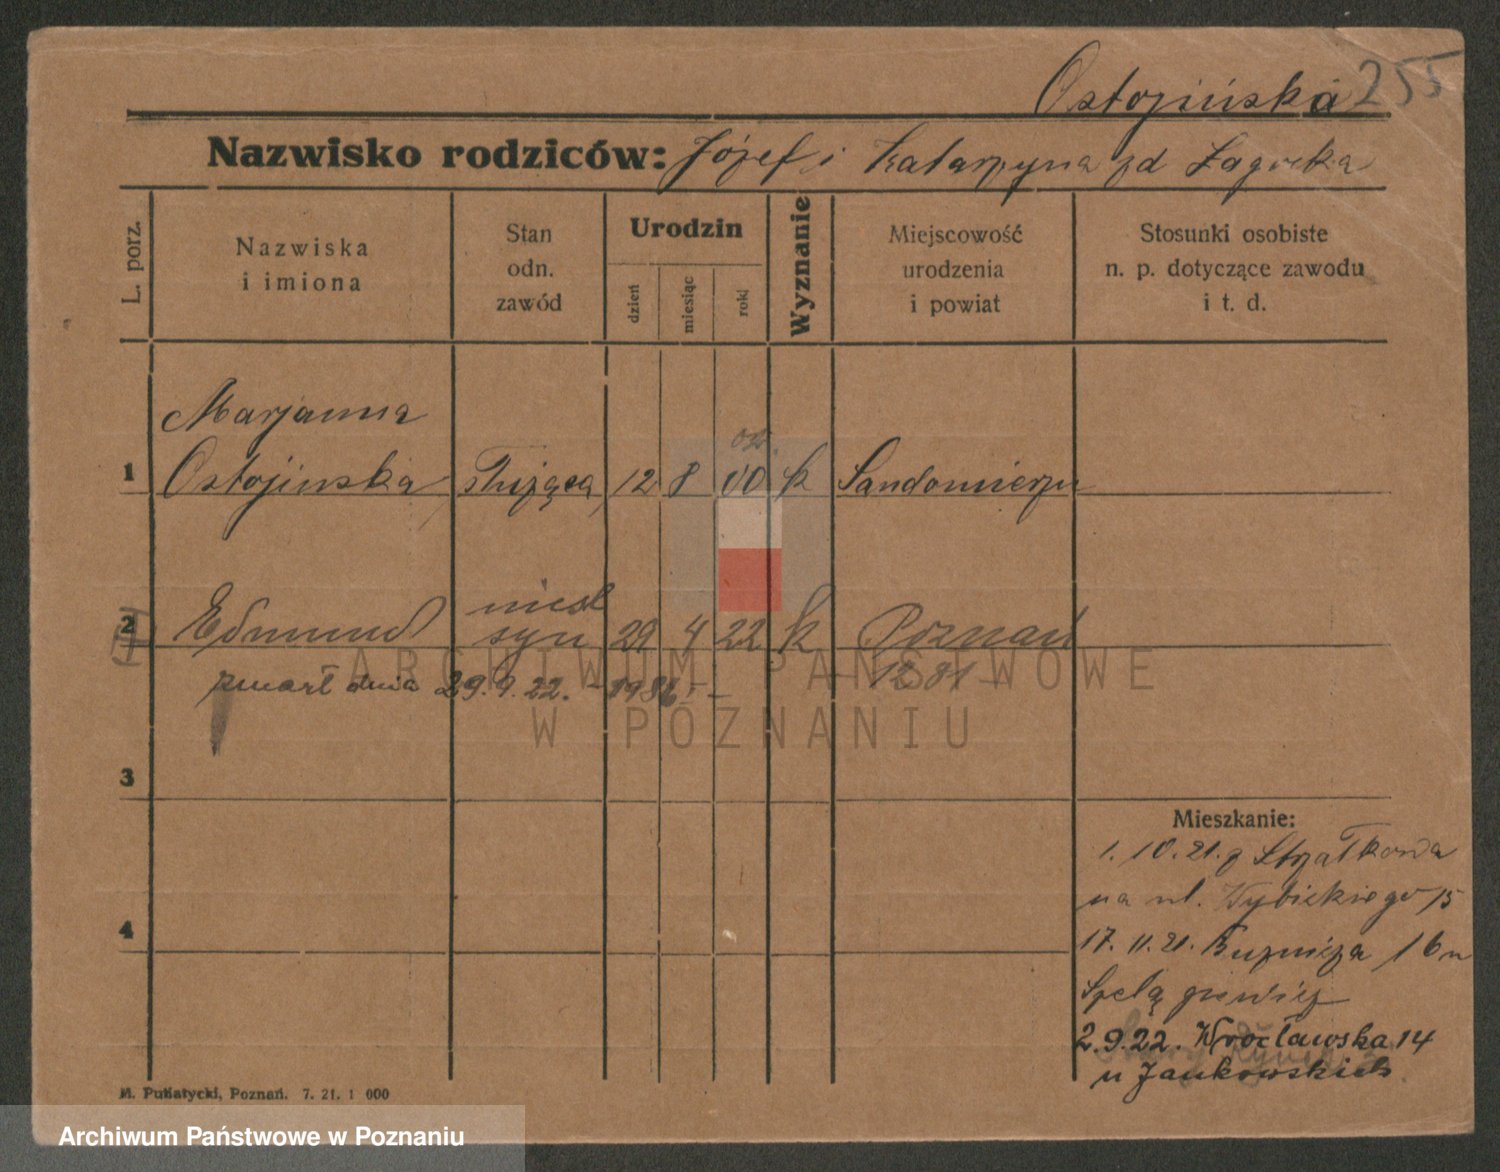 Ostojińska 255
Nazwisko rodziców: Józef i Katarzyna zd Zagórska
L. porz.
Nazwiska
i imiona
Stan
odn.
zawód
Urodzin
dzień
miesiąc
rok
Wyznanie
Miejscowość
urodzenia
i powiat
Stosunki osobiste
n. p. dotyczące zawodu
i t. d.
Marjanna
1 Ostojinska służąca 12 8 00 k Sandomierzu
nieśl
2 Edmund syn 29 4 22 k Poznań
zmarł dnia 29.9.22. - 1281 -
3
4
Mieszkanie:
1. 10. 21. z Strzałkowa
na ul. Wybickiego 15
17. 11. 21. 16 u
2.9.22. Wrocławska 14
u Jankowskich
M. Putiatycki, Poznań. 7. 21. 1 000
ARCHIWUM PAŃSTWOWE
W POZNANIU
Archiwum Państwowe w Poznaniu